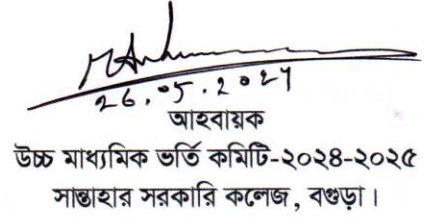 26.05.2024
আহবায়ক
উচ্চ মাধ্যমিক ভর্তি কমিটি-২০২৪-২০২৫
সান্তাহার সরকারি কলেজ, বগুড়া।